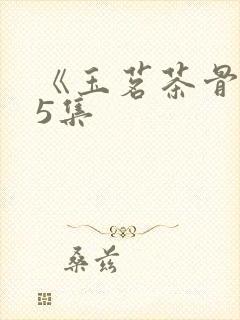 《玉茗茶骨
5集
桑兹